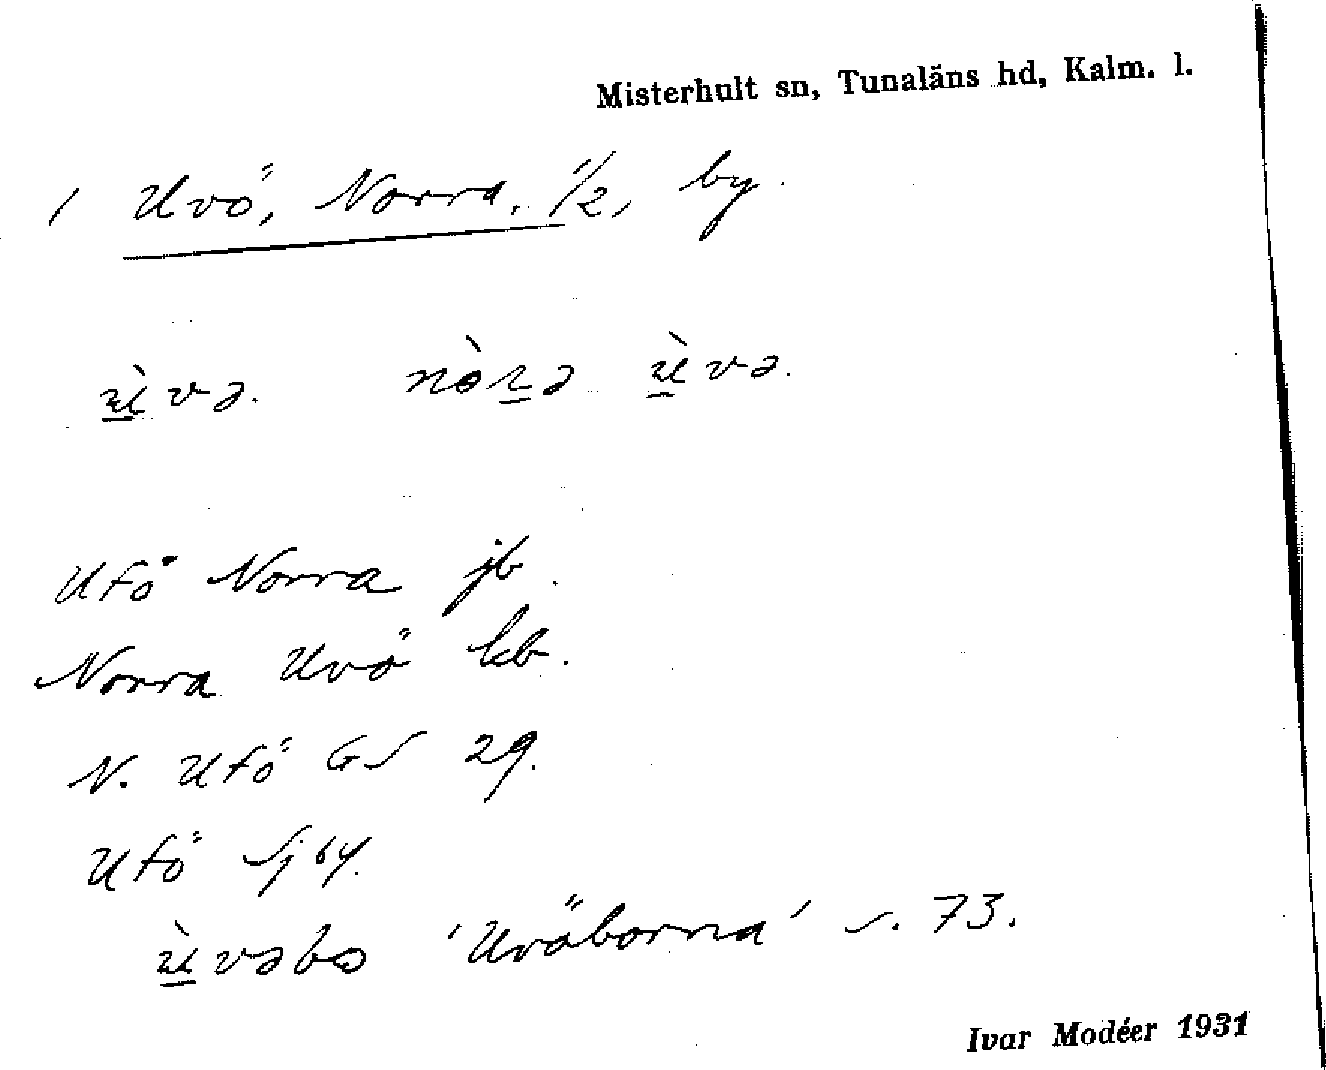 Misterhult sn, Tunaläns hd, Kalm. l.
1 Uvö, Norra, 1/2, by.
ùvə. nòrə ùvə.
Ufö Norra jb.
Norra Uvö kb.
N. Ufö GS 29.
Ufö Sj 64.
ùvəbo 'Uvöborna' s. 73.
Ivar Modéer 1931